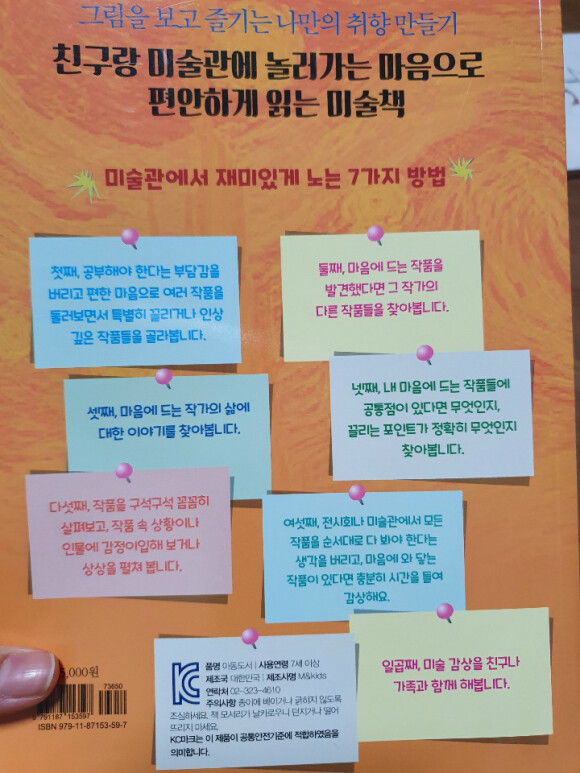 그림을 보고 즐기는 나만의 취향 만들기
친구랑 미술관에 놀러가는 마음으로
편안하게 읽는 미술책
미술관에서 재미있게 노는 7가지 방법
첫째, 공부해야 한다는 부담감을
버리고 편한 마음으로 여러 작품을
둘러보면서 특별히 끌리거나 인상
깊은 작품들을 골라봅니다.
둘째, 마음에 드는 작품을
발견했다면 그 작가의
다른 작품들을 찾아봅니다.
셋째, 마음에 드는 작가의 삶에
대한 이야기를 찾아봅니다.
넷째, 내 마음에 드는 작품들에
공통점이 있다면 무엇인지,
끌리는 포인트가 정확히 무엇인지
찾아봅니다.
다섯째, 작품을 구석구석 꼼꼼히
살펴보고, 작품 속 상황이나
인물에 감정이입해 보거나
상상을 펼쳐 봅니다.
여섯째, 전시회나 미술관에서 모든
작품을 순서대로 다 봐야 한다는
생각을 버리고, 마음에 와 닿는
작품이 있다면 충분히 시간을 들여
감상해요.
일곱째, 미술 감상을 친구나
가족과 함께 해봅니다.
KC
품명 아동도서 | 사용연령 7세 이상
제조국 대한민국 | 제조사명 M&kids
연락처 02-323-4610
주의사항 종이에 베이거나 긁히지 않도록
조심하세요. 책 모서리가 날카로우니 던지거나 떨어
뜨리지 마세요.
KC마크는 이 제품이 공통안전기준에 적합하였음을
의미합니다.
,000원
73650
791187 153597
ISBN 979-11-87153-59-7